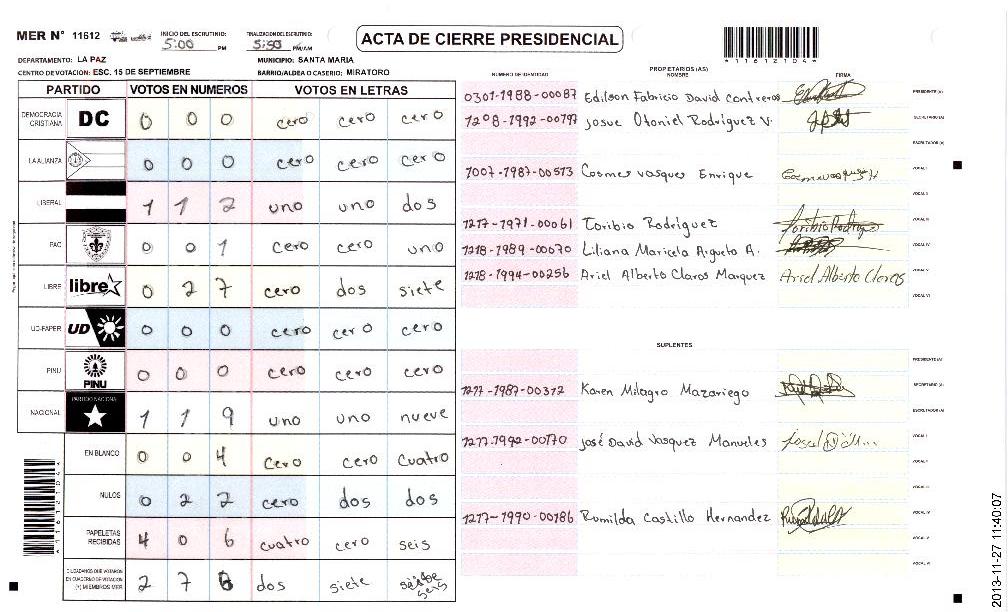 MER N° 11612
INICIO DEL ESCRUTINIO: 5:00 PM
FINALIZACION DEL ESCRUTINIO: 5:50 PM/AM
ACTA DE CIERRE PRESIDENCIAL
*11612104*
DEPARTAMENTO: LA PAZ
MUNICIPIO: SANTA MARIA
CENTRO DE VOTACION: ESC. 15 DE SEPTIEMBRE
BARRIO/ALDEA O CASERIO: MIRATORO
PARTIDO VOTOS EN NUMEROS VOTOS EN LETRAS
DEMOCRACIA CRISTIANA DC 0 0 0 cero cero cero
LA ALIANZA 0 0 0 cero cero cero
LIBERAL 1 1 2 uno uno dos
PAC 0 0 1 cero cero uno
LIBRE libre 0 2 7 cero dos siete
UD-FAPER UD 0 0 0 cero cero cero
PINU PINU 0 0 0 cero cero cero
NACIONAL PARTIDO NACIONAL 1 1 9 uno uno nueve
EN BLANCO 0 0 4 cero cero cuatro
NULOS 0 2 2 cero dos dos
PAPELETAS RECIBIDAS 4 0 6 cuatro cero seis
CIUDADANOS QUE VOTARON EN CUADERNO DE VOTACION (+) MIEMBROS MER 2 7 6 dos siete seis
PROPIETARIOS (AS)
NUMERO DE IDENTIDAD NOMBRE FIRMA
0301-1988-00087 Edilson Fabricio David Contreros PRESIDENTE (A)
1208-1992-00797 Josue Otoniel Rodríguez V. SECRETARIO (A)
ESCRUTADOR (A)
7007-1987-00573 Cosmes Vasques Enrique VOCAL I
VOCAL II
1217-1971-00061 Toribio Rodríguez Toribio Rodriguez VOCAL III
1218-1989-00070 Liliana Maricela Argueta A. VOCAL IV
1218-1994-00256 Ariel Alberto Claros Marquez Ariel Alberto Claros VOCAL V
VOCAL VI
SUPLENTES
PRESIDENTE (A)
1217-1987-00372 Karen Milagro Mazariego SECRETARIO (A)
ESCRUTADOR (A)
1217-1992-00170 José David Vasquez Manueles VOCAL I
VOCAL II
VOCAL III
1217-1990-00186 Rumilda Castillo Hernandez VOCAL IV
VOCAL V
VOCAL VI
*11612104*
2013-11-27 11:40:07